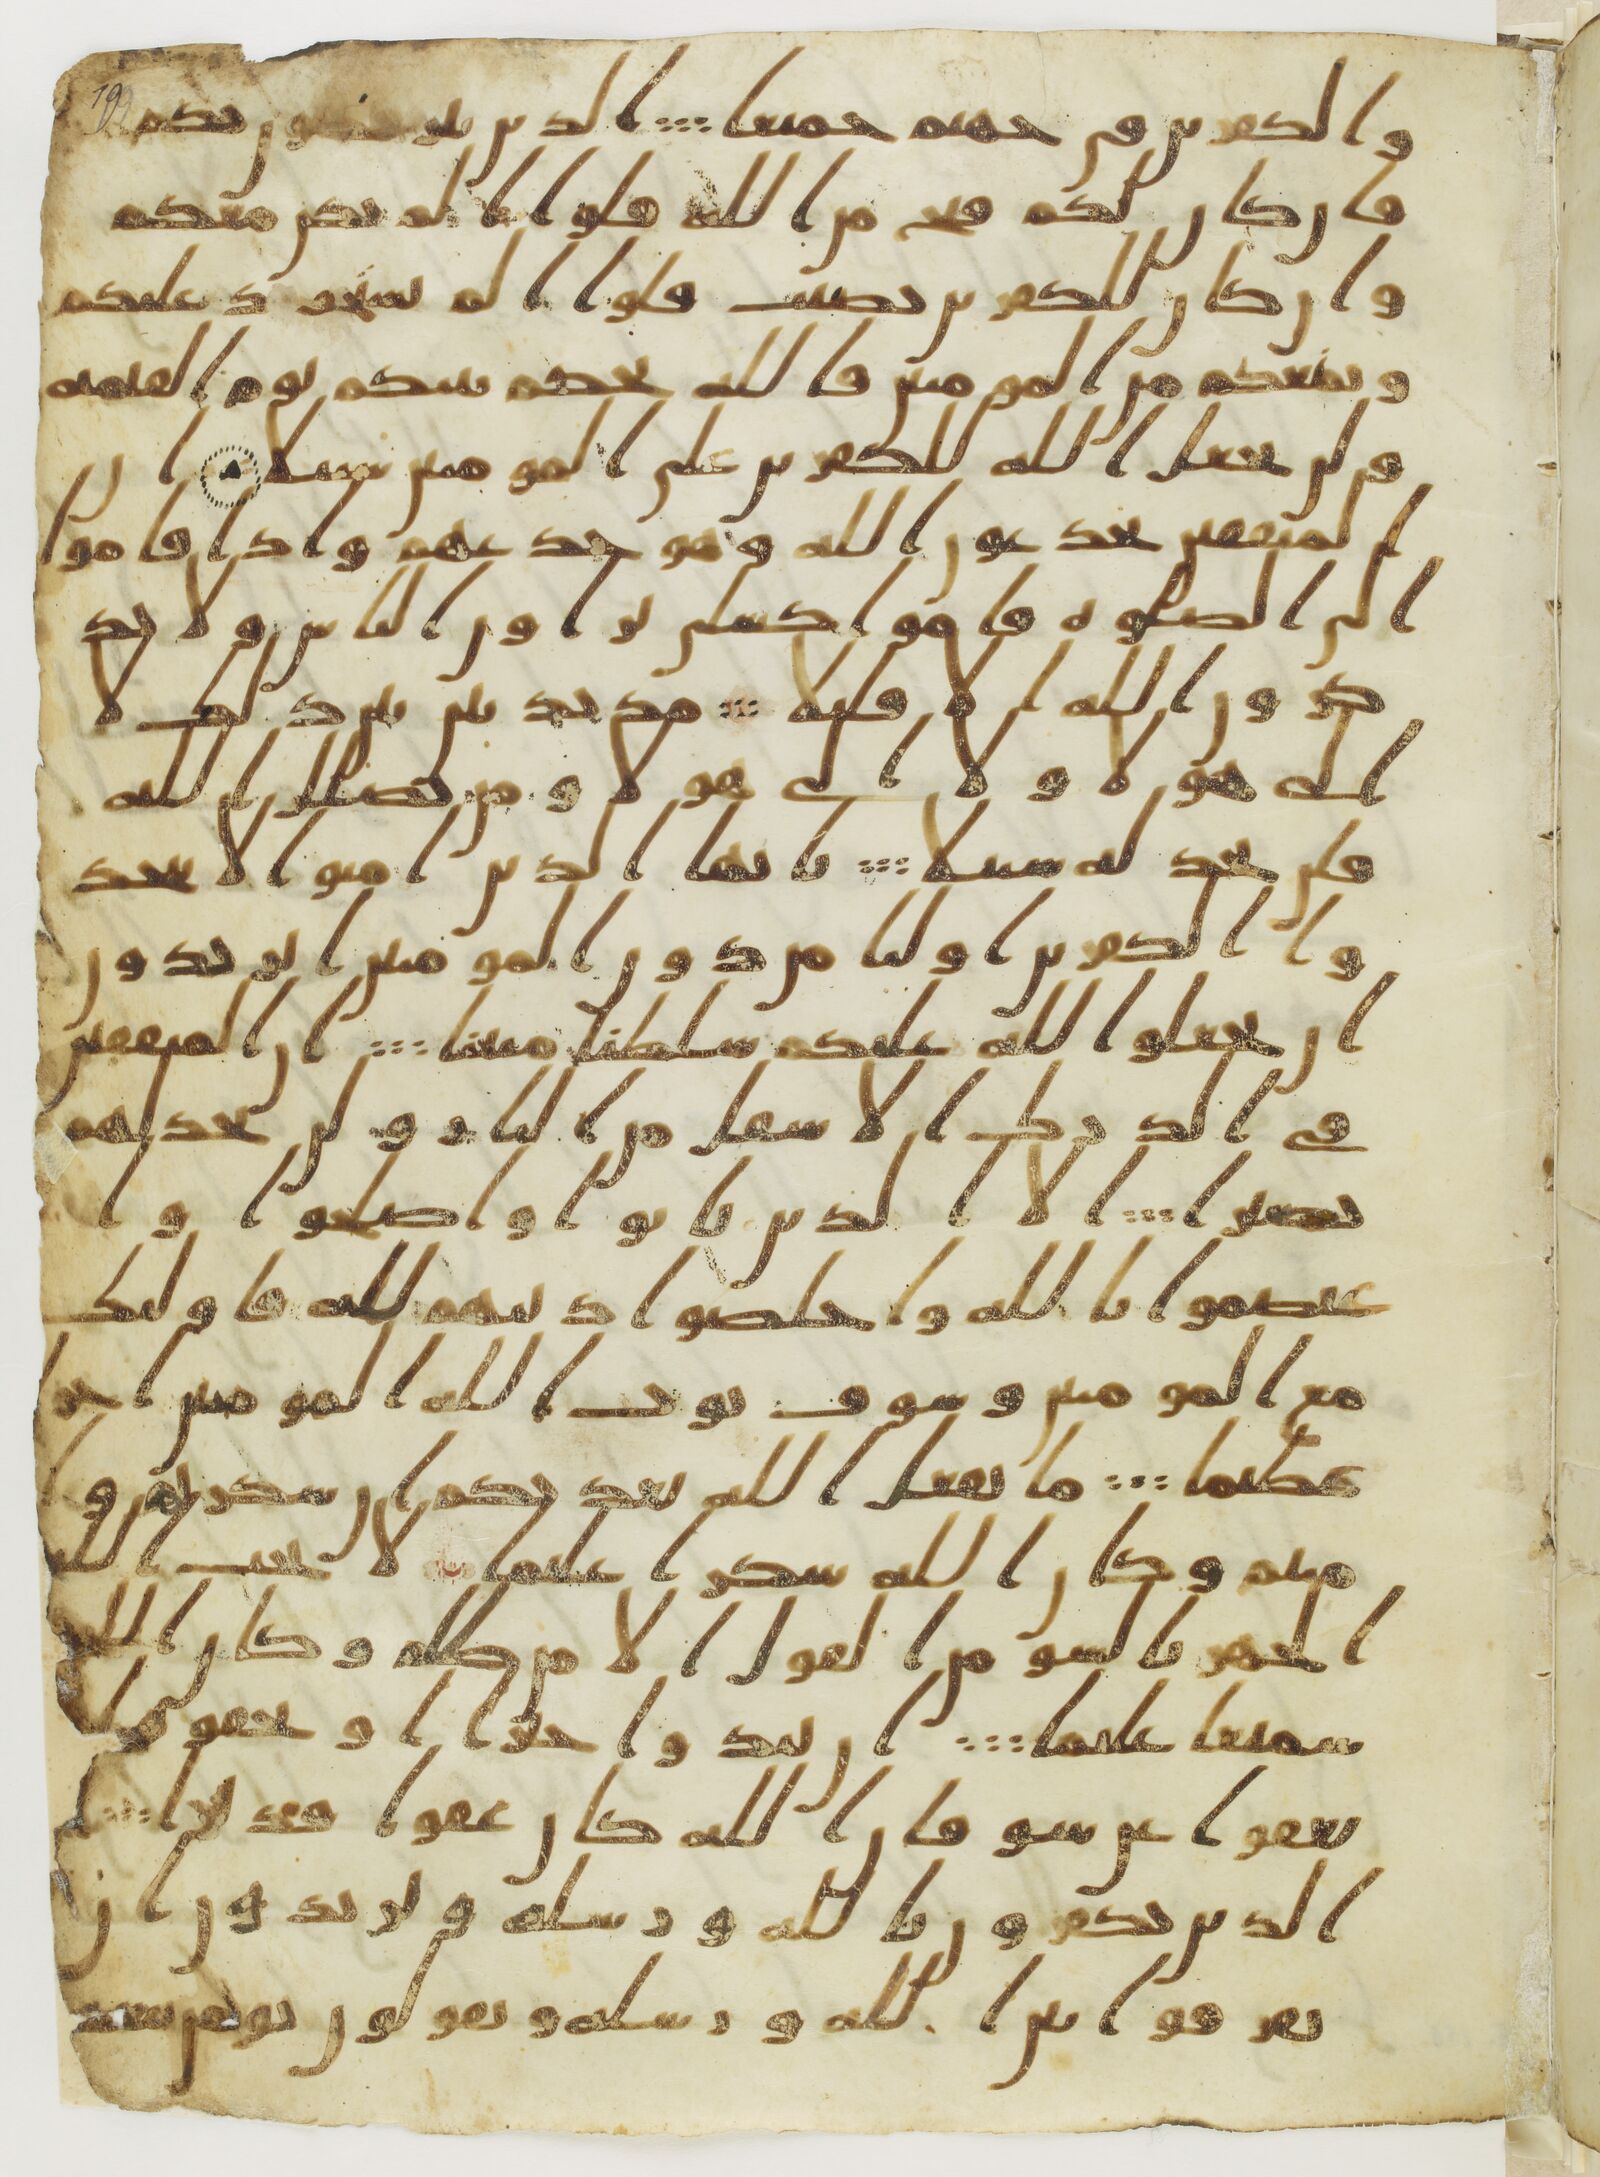 والكفرين في جهنم جميعا الذين يتربصون بكم
فان كان لكم فتح من الله قالوا الم نكن معكم
وان كان للكفرين نصيب قالوا الم نستحوذ عليكم
ونمنعكم من المومنين فالله يحكم بينكم يوم القيمه
ولن يجعل الله للكفرين على المومنين سبيلا ان
المنفقين يخدعون الله وهو خدعهم واذا قاموا
الى الصلوه قاموا كسلى يراون الناس ولا يذ
كرون الله الا قليلا مذبذبين بين ذلك لا
الى هولا ولا الى هولا ومن يضلل الله
فلن تجد له سبيلا يايها الذين امنوا لا تتخذ
وا الكفرين اوليا من دون المومنين اتريدون
ان تجعلوا لله عليكم سلطنا مبينا ان المنفقين
في الدرك الاسفل من النار ولن تجد لهم
نصيرا الا الذين تابوا واصلحوا وا
عتصموا بالله واخلصوا دينهم لله فاوليك
مع المومنين وسوف يوت الله المومنين اجرا
عظيما ما يفعل الله بعذبكم ان شكرتم وا
منتم وكان الله شكرا عليما لا يحب الله
الجهر بالسو من القول الا من ظلم وكان الله
سميعا عليما ان تبدوا خيرا او تخفوه ا
و تعفوا عن سو فان الله كان عفوا قديرا ان
الذين يكفرون بالله ورسله ويريدون ان
يفرقوا بين الله ورسله ويقولون نومن ببعض